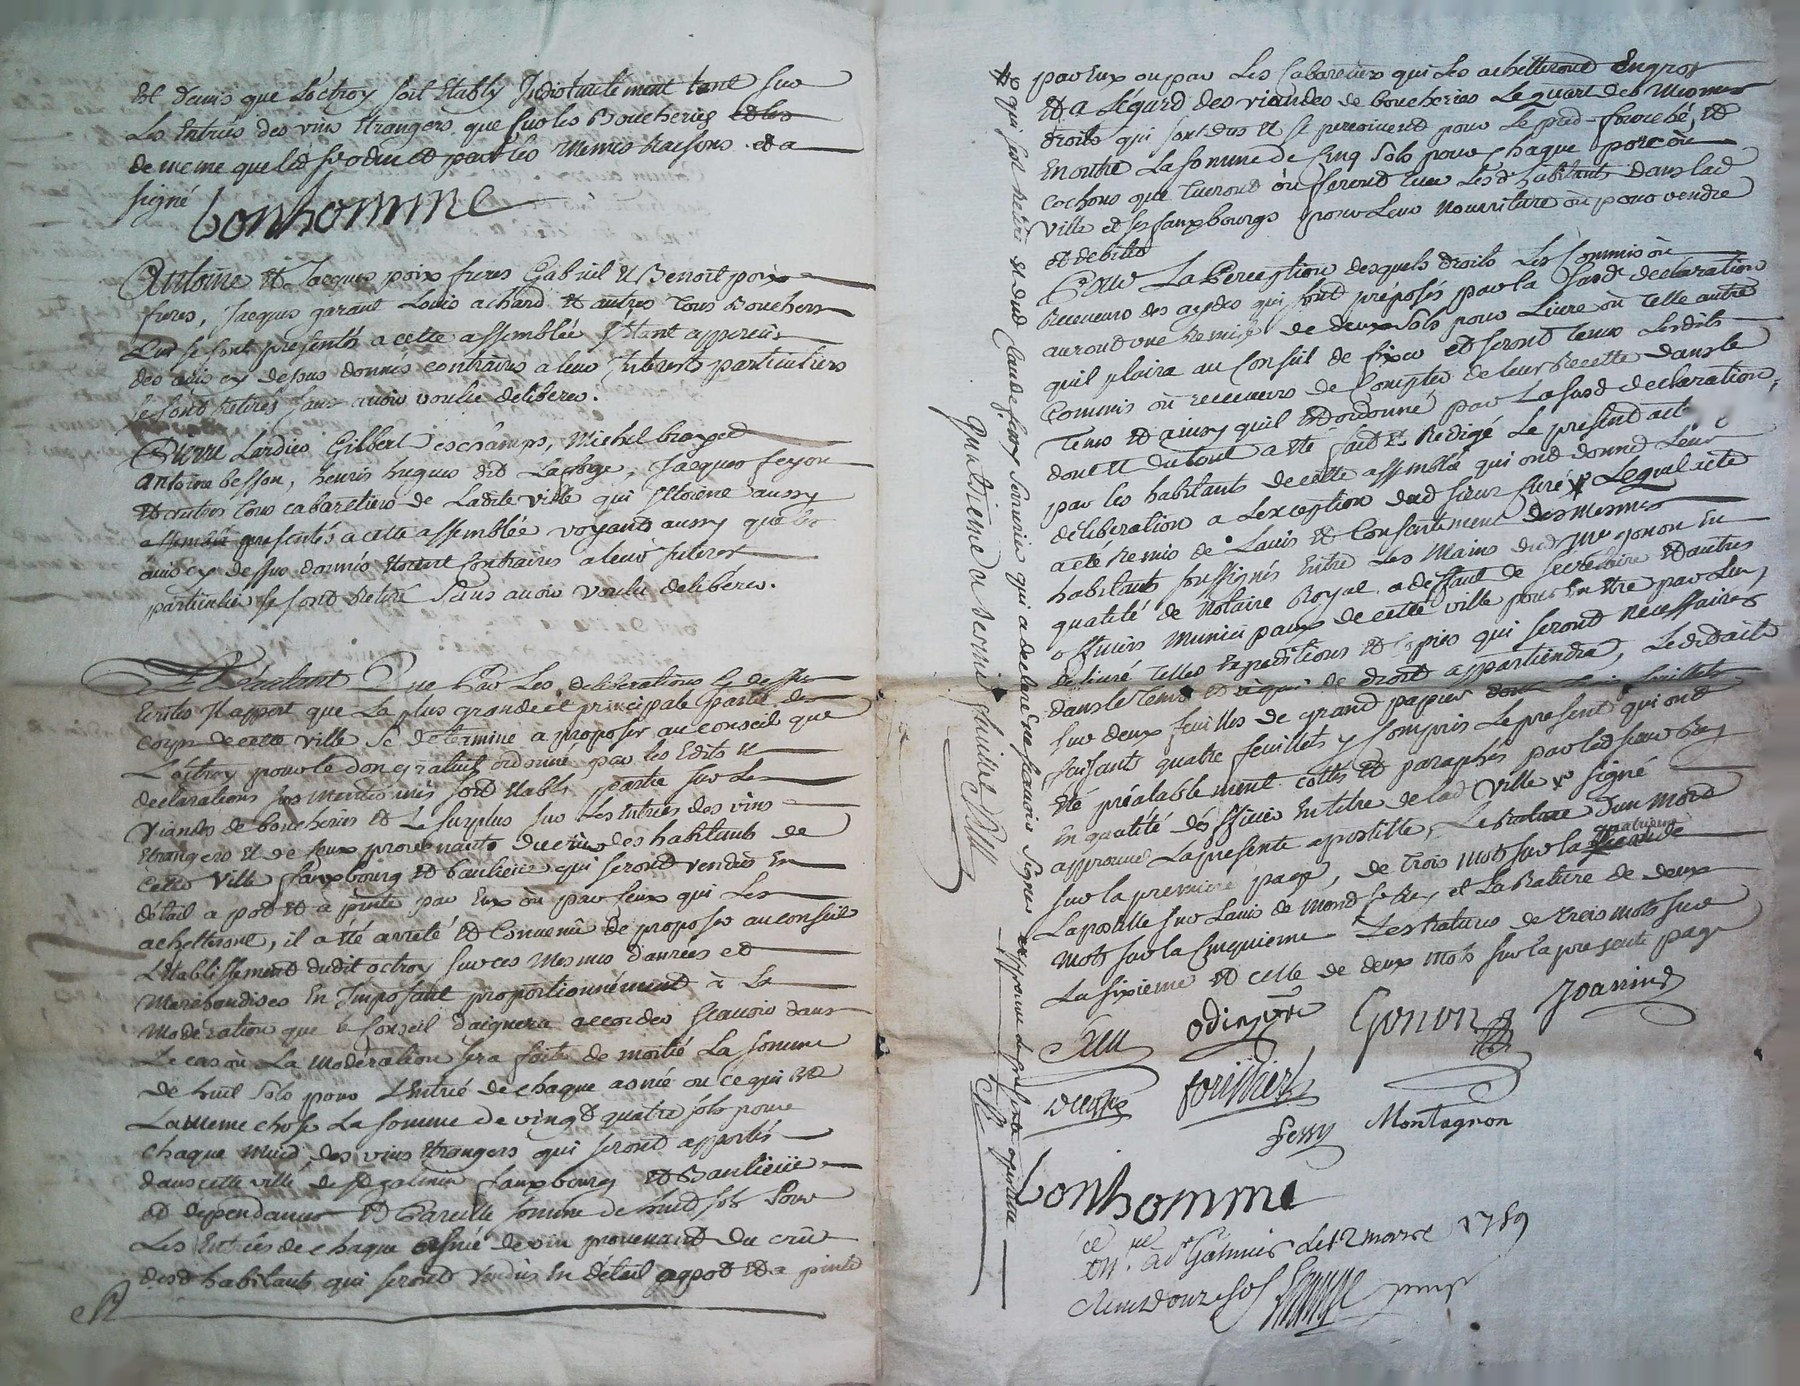 Est d'avis que l'octroy soit Etably Indistinctement tant sur
Les Entrées des vins Etrangers que sur les Boucheries
de meme que led Sr et par les Memes Raisons et a
signé bonhomme
Antoine Et Jacques poix freres Gabriel Et Benoit poix
freres, Jacques garant Louis achard Et autres Tous Bouchers
se sont presentés a cette assemblée Etant
des avis cy dessus donnés contraires a leurs Interests particuliers
se sont Retirés sans avoir voulu deliberer.
Pierre Lardier Gilbert deschamps, Michel
antoine besson, henris hugues dit Laforge, Jacques feyon
Et autres Tous cabaretiers de Ladite ville qui aussy
presentés a cette assemblée voyant aussy que les
avis cy dessus donnés Etoient Contraires a leurs Interest
particulier se sont Retiré sans avoir voulu deliberer.
Et Resultant Que Par Les deliberations Cy dessus
Ecrites Il appert que La plus grande et principale partie du
Corps de cette ville Se determine a proposer au conseil que
L'octroy pour le don gratuit ordonné par les Edits Et
declarations sus Mentionnés soit Etabli partie sur Les
Viandes de boucheries Et Le surplus sur Les Entrées des vins
Etrangers Et de Ceux provenants du crû des habitants de
Cette Ville fauxbourg Et banlieüe qui seront vendus En
détail a pot Et a pinte par Eux ou par Ceux qui Les
achetteront, il a été arreté Et Convenû de proposer au conseil
L'etablissement dudit octroy sur ces Mesmes danrées Et
Marchandises En Imposant proportionnément à La
Modération que le Conseil daignera accorder Scavoir dans
Le cas où La Modération sera faite de moitié La somme
de huit Sols pour L'Entrée de chaque asnée ou ce qui Est
La meme chose La somme de vingt quatre sols pour
chaque Muid des vins Etrangers qui seront apportés
dans cette ville de St galmier fauxbourg Et Banlieüe
et dependances Et Pareille somme de huit sols Pour
Les Entrées de chaque asnée de vin provenant Du crû
desd habitants qui seront Vendus En détail a pot Et a pinte
par Eux ou par Les Cabaretiers qui Les achetteront En gros
Et a L'égard des viandes de boucheries Le quart des Mesmes
droits qui sont dus Et se perçoivent pour Le pied fourché, Et
En outre La somme de Cinq Sols pour chaque porc ou
Cochons que Tueront ou feront tuer Lesd habitants dans lad
Ville et ses fauxbourgs pour Leur Nourriture ou pour vendre
et debiter
Pour La Perception desquels droits Les Commis ou
Receveurs des aydes qui sont préposés par la susde declaration
auront une Remise de deux Sols pour Livre ou Telle autre
qu'il plaira au Conseil de fixer Et seront Tenus Lesdits
Commis ou receveurs de Compter de leur Recette dans le
Tems Et ainsy quil Est ordonné par La susd declaration,
dont Et du tout a été fait Et Redigé Le present acte
par les habitants de cette assemblée qui ont donné Leur
déliberation a L'exception dud sieur Curé Lequel acte
a été Remis de L'avis Et Consentement des Mesmes
habitants soussignés Entre Les Mains dud Me gonon En
qualité de Notaire Royal a deffaut de secretaire Et autres
officiers Municipaux de cette ville pour En être par Luy
delivré Telles Expeditions Et Copies qui seront Necessaires
dans le tems Et a qui de droit appartiendra, Ledit acte
sur deux feuilles de grand papier
faisant quatre feuillets y Compris Le present qui ont
été préalablement cottés Et paraphés par led sieur Rey
En qualité d'officier En titre de lad Ville signé
approuvé La presente apostille, La Rature d'un Mot
sur la premiere page, de Trois Mots sur la quatrieme
L'apostille sur L'avis de Mond Sr Rey et La Rature de deux
Mots sur la Cinquieme Les ratures de trois mots sur
La sixieme Et celle de deux Mots sur la presente page
Odin curé Gonon Joanin
fouillet
ferry Montagnon
bonhomme
Con.lé à St Galmier le 12 mars 1759
Reçu douze sols
qui s'est Retiré Et dud Claude ferry qui a declaré ne scavoir signer approuvé la presente apostille
quatrieme et dernier feuillet